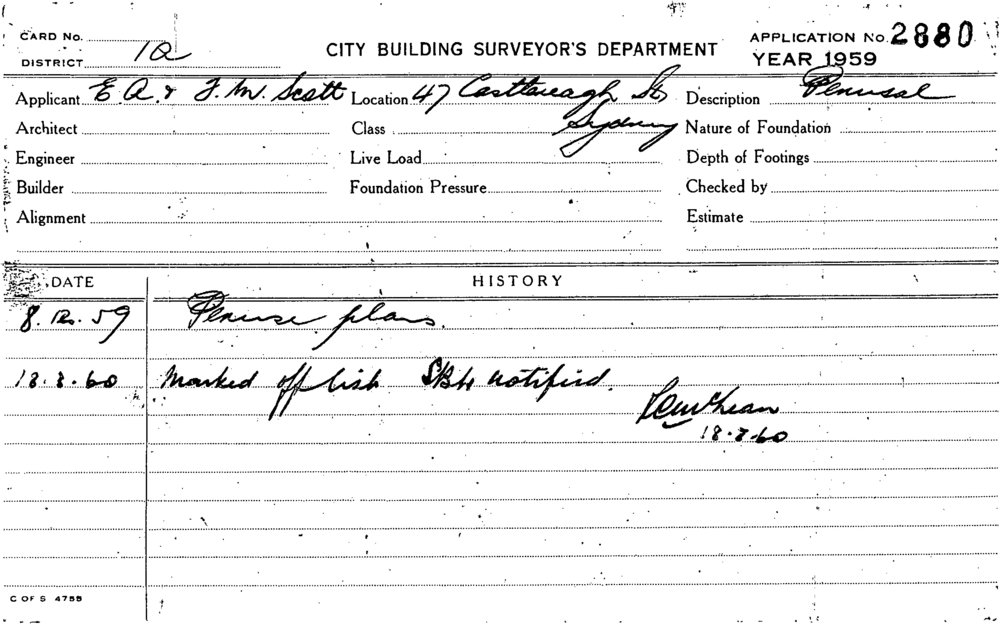 CARD No.
DISTRICT 1A
CITY BUILDING SURVEYOR'S DEPARTMENT
APPLICATION No. 2880
YEAR 1959
Applicant E.A. & F.M. Scott Location 47 Castlereagh St, Sydney Description Perusal
Architect Class Nature of Foundation
Engineer Live Load Depth of Footings
Builder Foundation Pressure Checked by
Alignment Estimate
DATE HISTORY
8.12.59 Peruse plans.
18.3.60 Marked off list notified.
18.3.60
C OF S 4755